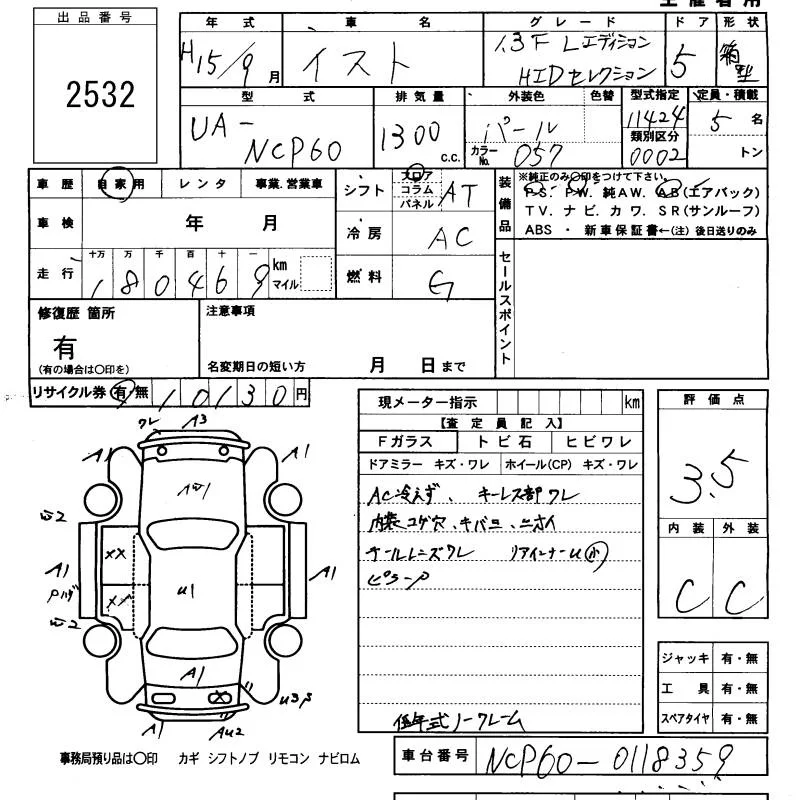 出品番号
2532
年式 車名 グレード ドア 形状
H15/9月 イスト 1.3F Lエディション HIDセレクション 5 箱型
型式 排気量 外装色 色替 型式指定 定員・積載
UA-NCP60 1300 c.c. パール 11424 5名
カラーNo. 057 類別区分 0002 トン
車歴 自家用 レンタ 事業.営業車
シフト フロア コラム パネル AT
車検 年 月
冷房 AC
走行 十万 万 千 百 十 一
180469 km マイル
燃料 G
装備品 ※純正のみ〇印をつけて下さい。
P S. P W. 純A W. A B(エアバック)
T V. ナビ. カワ. S R(サンルーフ)
ABS ・ 新車保証書←(注) 後日送りのみ
セールスポイント
修復歴 箇所
有
(有の場合は〇印を)
注意事項
名変期日の短い方 月 日まで
リサイクル券 有 無 10130円
現メーター指示 km
【査定員記入】
Fガラス トビ石 ヒビワレ
ドアミラー キズ・ワレ ホイール(CP) キズ・ワレ
AC冷えず、 キーレス部ワレ
内装コゲ穴、キバミ、ニオイ
テールレンズワレ リアインナーU小
ピラーP
低年式ノークレーム
評価点
3.5
内装 外装
C C
ジャッキ 有・無
工具 有・無
スペアタイヤ 有・無
ワレ A3
A1 A1
A1
XX
A1 U1 A1
XX
A1 U3P
A1 AU2
事務局預り品は〇印 カギ シフトノブ リモコン ナビロム
車台番号 NCP60-0118359